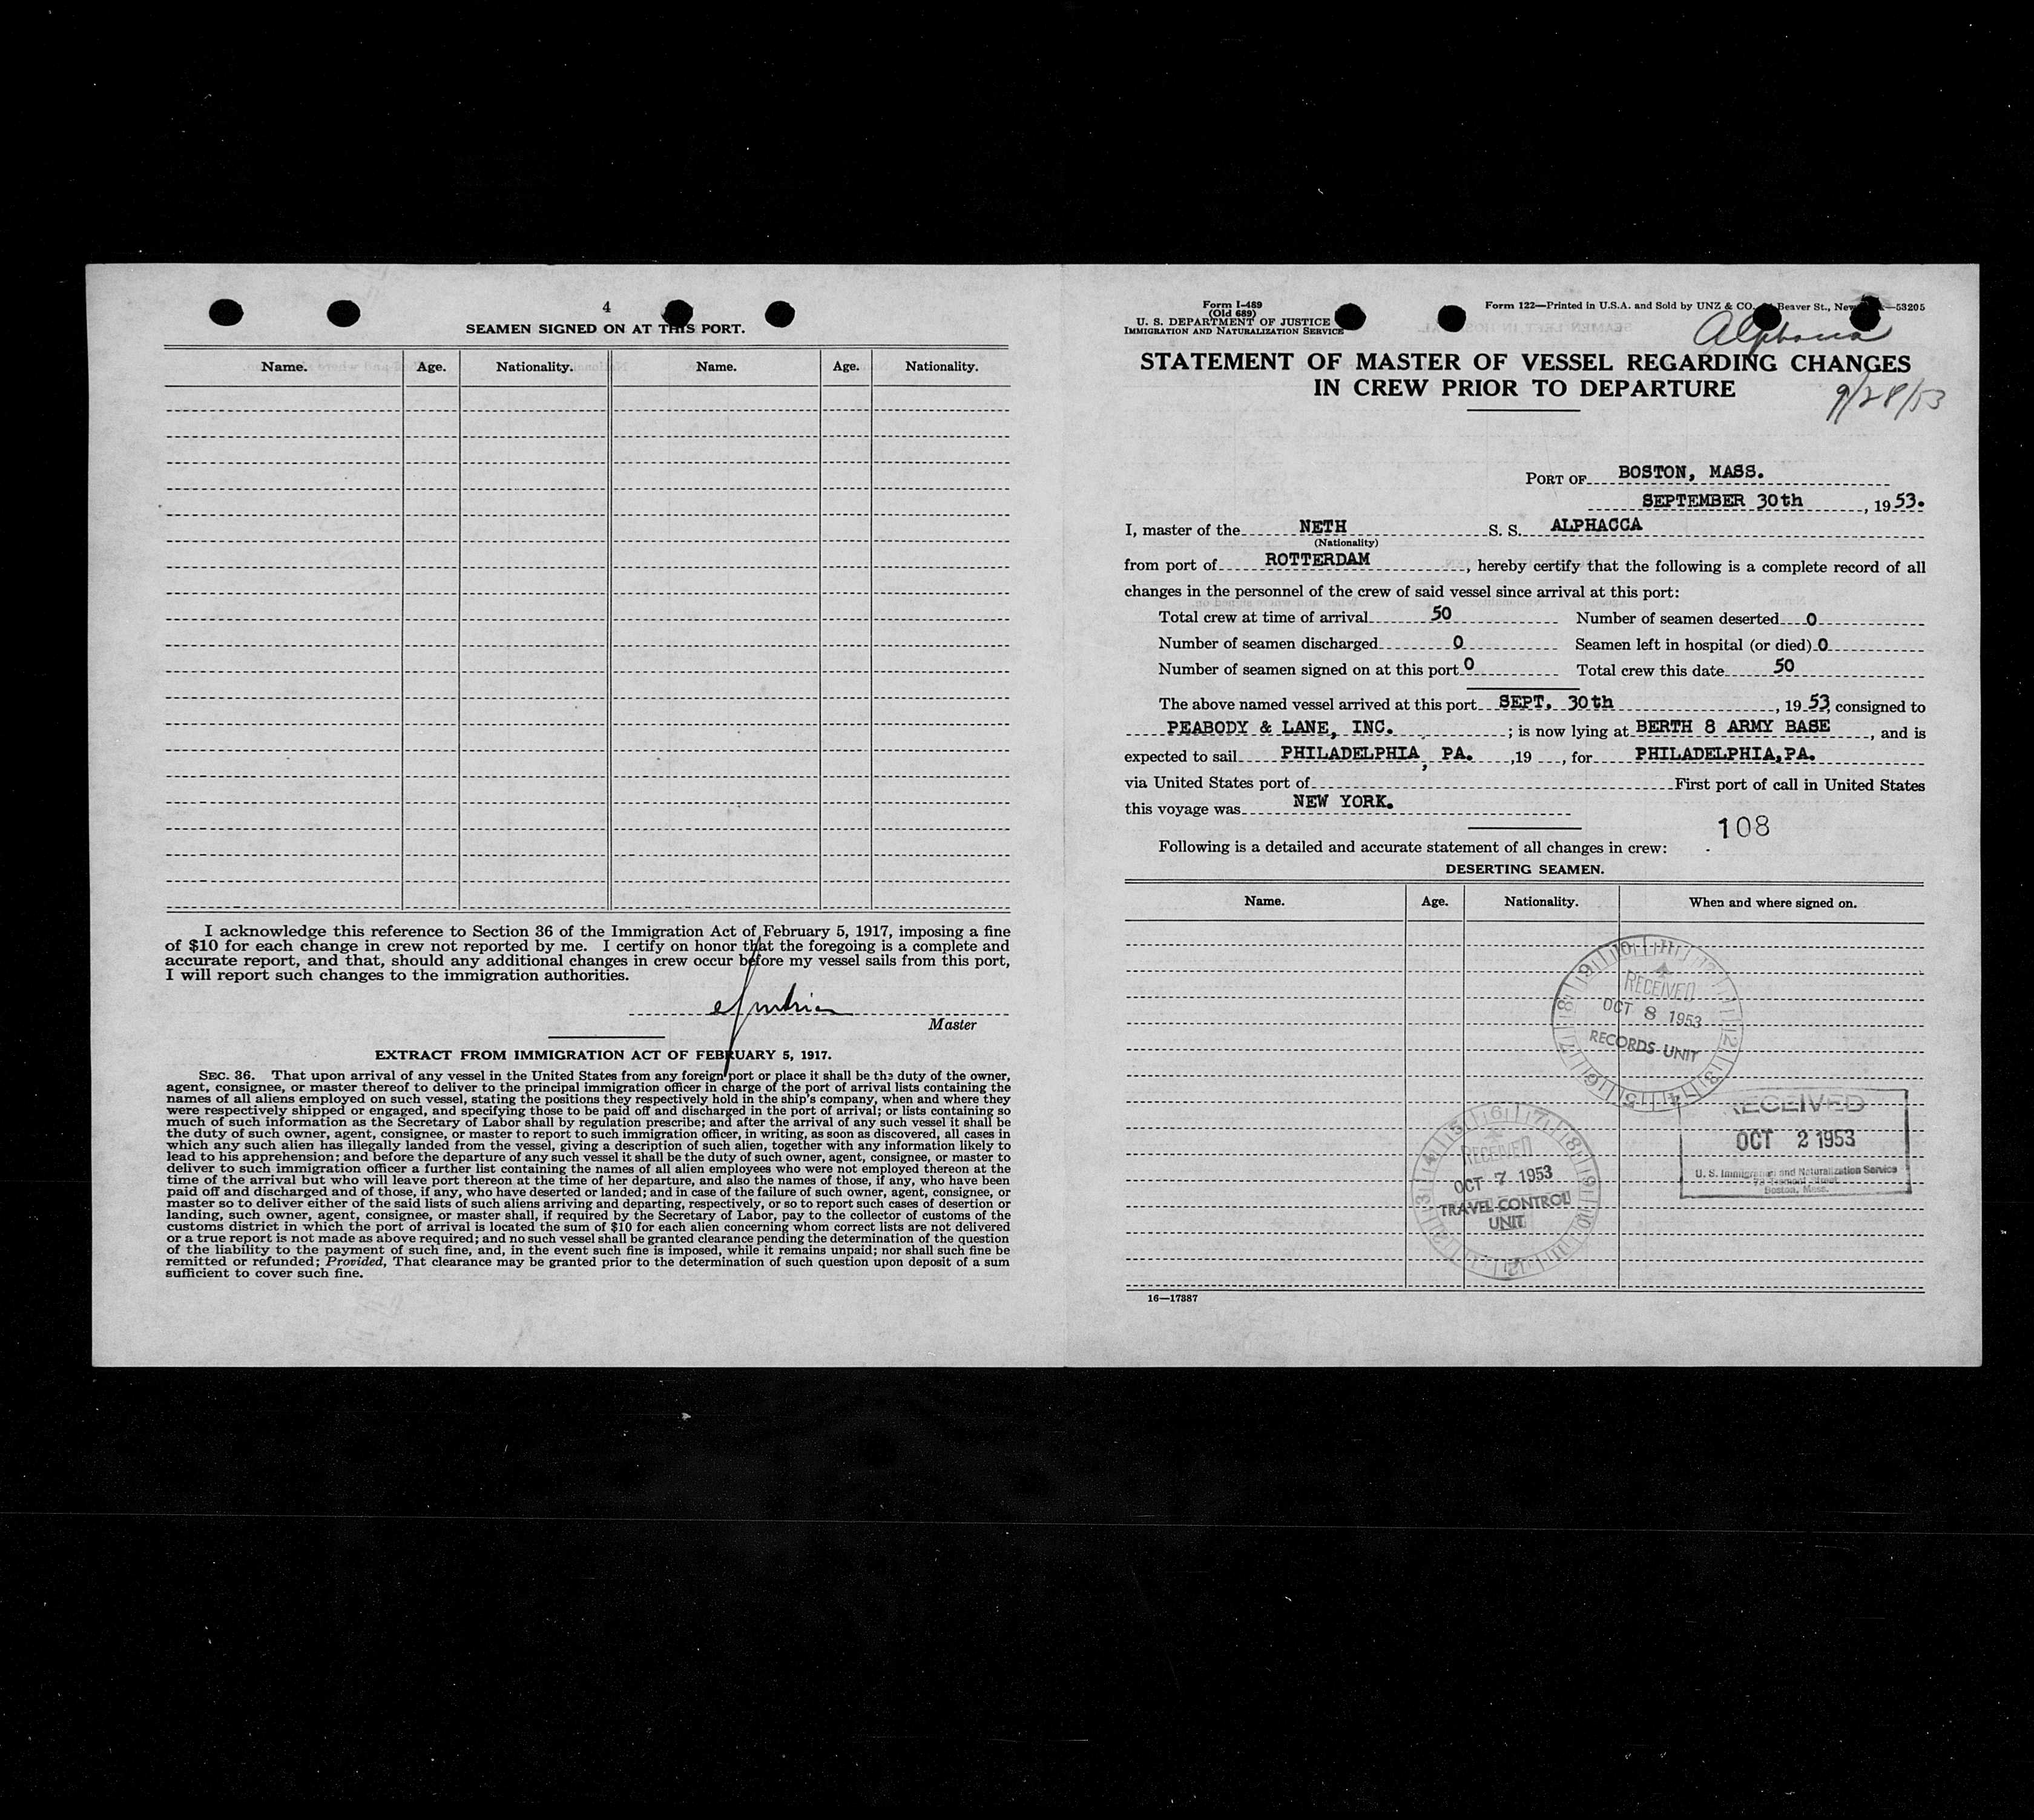 4
SEAMEN SIGNED ON AT THIS PORT.
Name. Age. Nationality. Name. Age. Nationality.
I acknowledge this reference to Section 36 of the Immigration Act of February 5, 1917, imposing a fine
of $10 for each change in crew not reported by me. I certify on honor that the foregoing is a complete and
accurate report, and that, should any additional changes in crew occur before my vessel sails from this port,
I will report such changes to the immigration authorities.
Master
EXTRACT FROM IMMIGRATION ACT OF FEBRUARY 5, 1917.
SEC. 36. That upon arrival of any vessel in the United States from any foreign port or place it shall be the duty of the owner,
agent, consignee, or master thereof to deliver to the principal immigration officer in charge of the port of arrival lists containing the
names of all aliens employed on such vessel, stating the positions they respectively hold in the ship's company, when and where they
were respectively shipped or engaged, and specifying those to be paid off and discharged in the port of arrival; or lists containing so
much of such information as the Secretary of Labor shall by regulation prescribe; and after the arrival of any such vessel it shall be
the duty of such owner, agent, consignee, or master to report to such immigration officer, in writing, as soon as discovered, all cases in
which any such alien has illegally landed from the vessel, giving a description of such alien, together with any information likely to
lead to his apprehension; and before the departure of any such vessel it shall be the duty of such owner, agent, consignee, or master to
deliver to such immigration officer a further list containing the names of all alien employees who were not employed thereon at the
time of the arrival but who will leave port thereon at the time of her departure, and also the names of those, if any, who have been
paid off and discharged and of those, if any, who have deserted or landed; and in case of the failure of such owner, agent, consignee, or
master so to deliver either of the said lists of such aliens arriving and departing, respectively, or so to report such cases of desertion or
landing, such owner, agent, consignee, or master shall, if required by the Secretary of Labor, pay to the collector of customs of the
customs district in which the port of arrival is located the sum of $10 for each alien concerning whom correct lists are not delivered
or a true report is not made as above required; and no such vessel shall be granted clearance pending the determination of the question
of the liability to the payment of such fine, and, in the event such fine is imposed, while it remains unpaid; nor shall such fine be
remitted or refunded; Provided, That clearance may be granted prior to the determination of such question upon deposit of a sum
sufficient to cover such fine.
Form I-489
(Old 689)
U. S. DEPARTMENT OF JUSTICE
IMMIGRATION AND NATURALIZATION SERVICE
Form 122—Printed in U.S.A. and Sold by UNZ & CO. Beaver St., New —53205
Alphacca
STATEMENT OF MASTER OF VESSEL REGARDING CHANGES
IN CREW PRIOR TO DEPARTURE
9/28/53
PORT OF BOSTON, MASS.
SEPTEMBER 30th, 1953.
I, master of the NETH S. S. ALPHACCA
(Nationality)
from port of ROTTERDAM, hereby certify that the following is a complete record of all
changes in the personnel of the crew of said vessel since arrival at this port:
Total crew at time of arrival 50 Number of seamen deserted 0
Number of seamen discharged 0 Seamen left in hospital (or died) 0
Number of seamen signed on at this port 0 Total crew this date 50
The above named vessel arrived at this port SEPT. 30th, 1953, consigned to
PEABODY & LANE, INC. ; is now lying at BERTH 8 ARMY BASE, and is
expected to sail PHILADELPHIA, PA. ,19 , for PHILADELPHIA,PA.
via United States port of First port of call in United States
this voyage was NEW YORK.
108
Following is a detailed and accurate statement of all changes in crew:
DESERTING SEAMEN.
Name. Age. Nationality. When and where signed on.
RECEIVED
OCT 8 1953
RECORDS UNIT
RECEIVED
OCT 2 1953
U. S. Immigration and Naturalization Service
Boston, Mass.
RECEIVED
OCT 7 1953
TRAVEL CONTROL
UNIT
16—17387